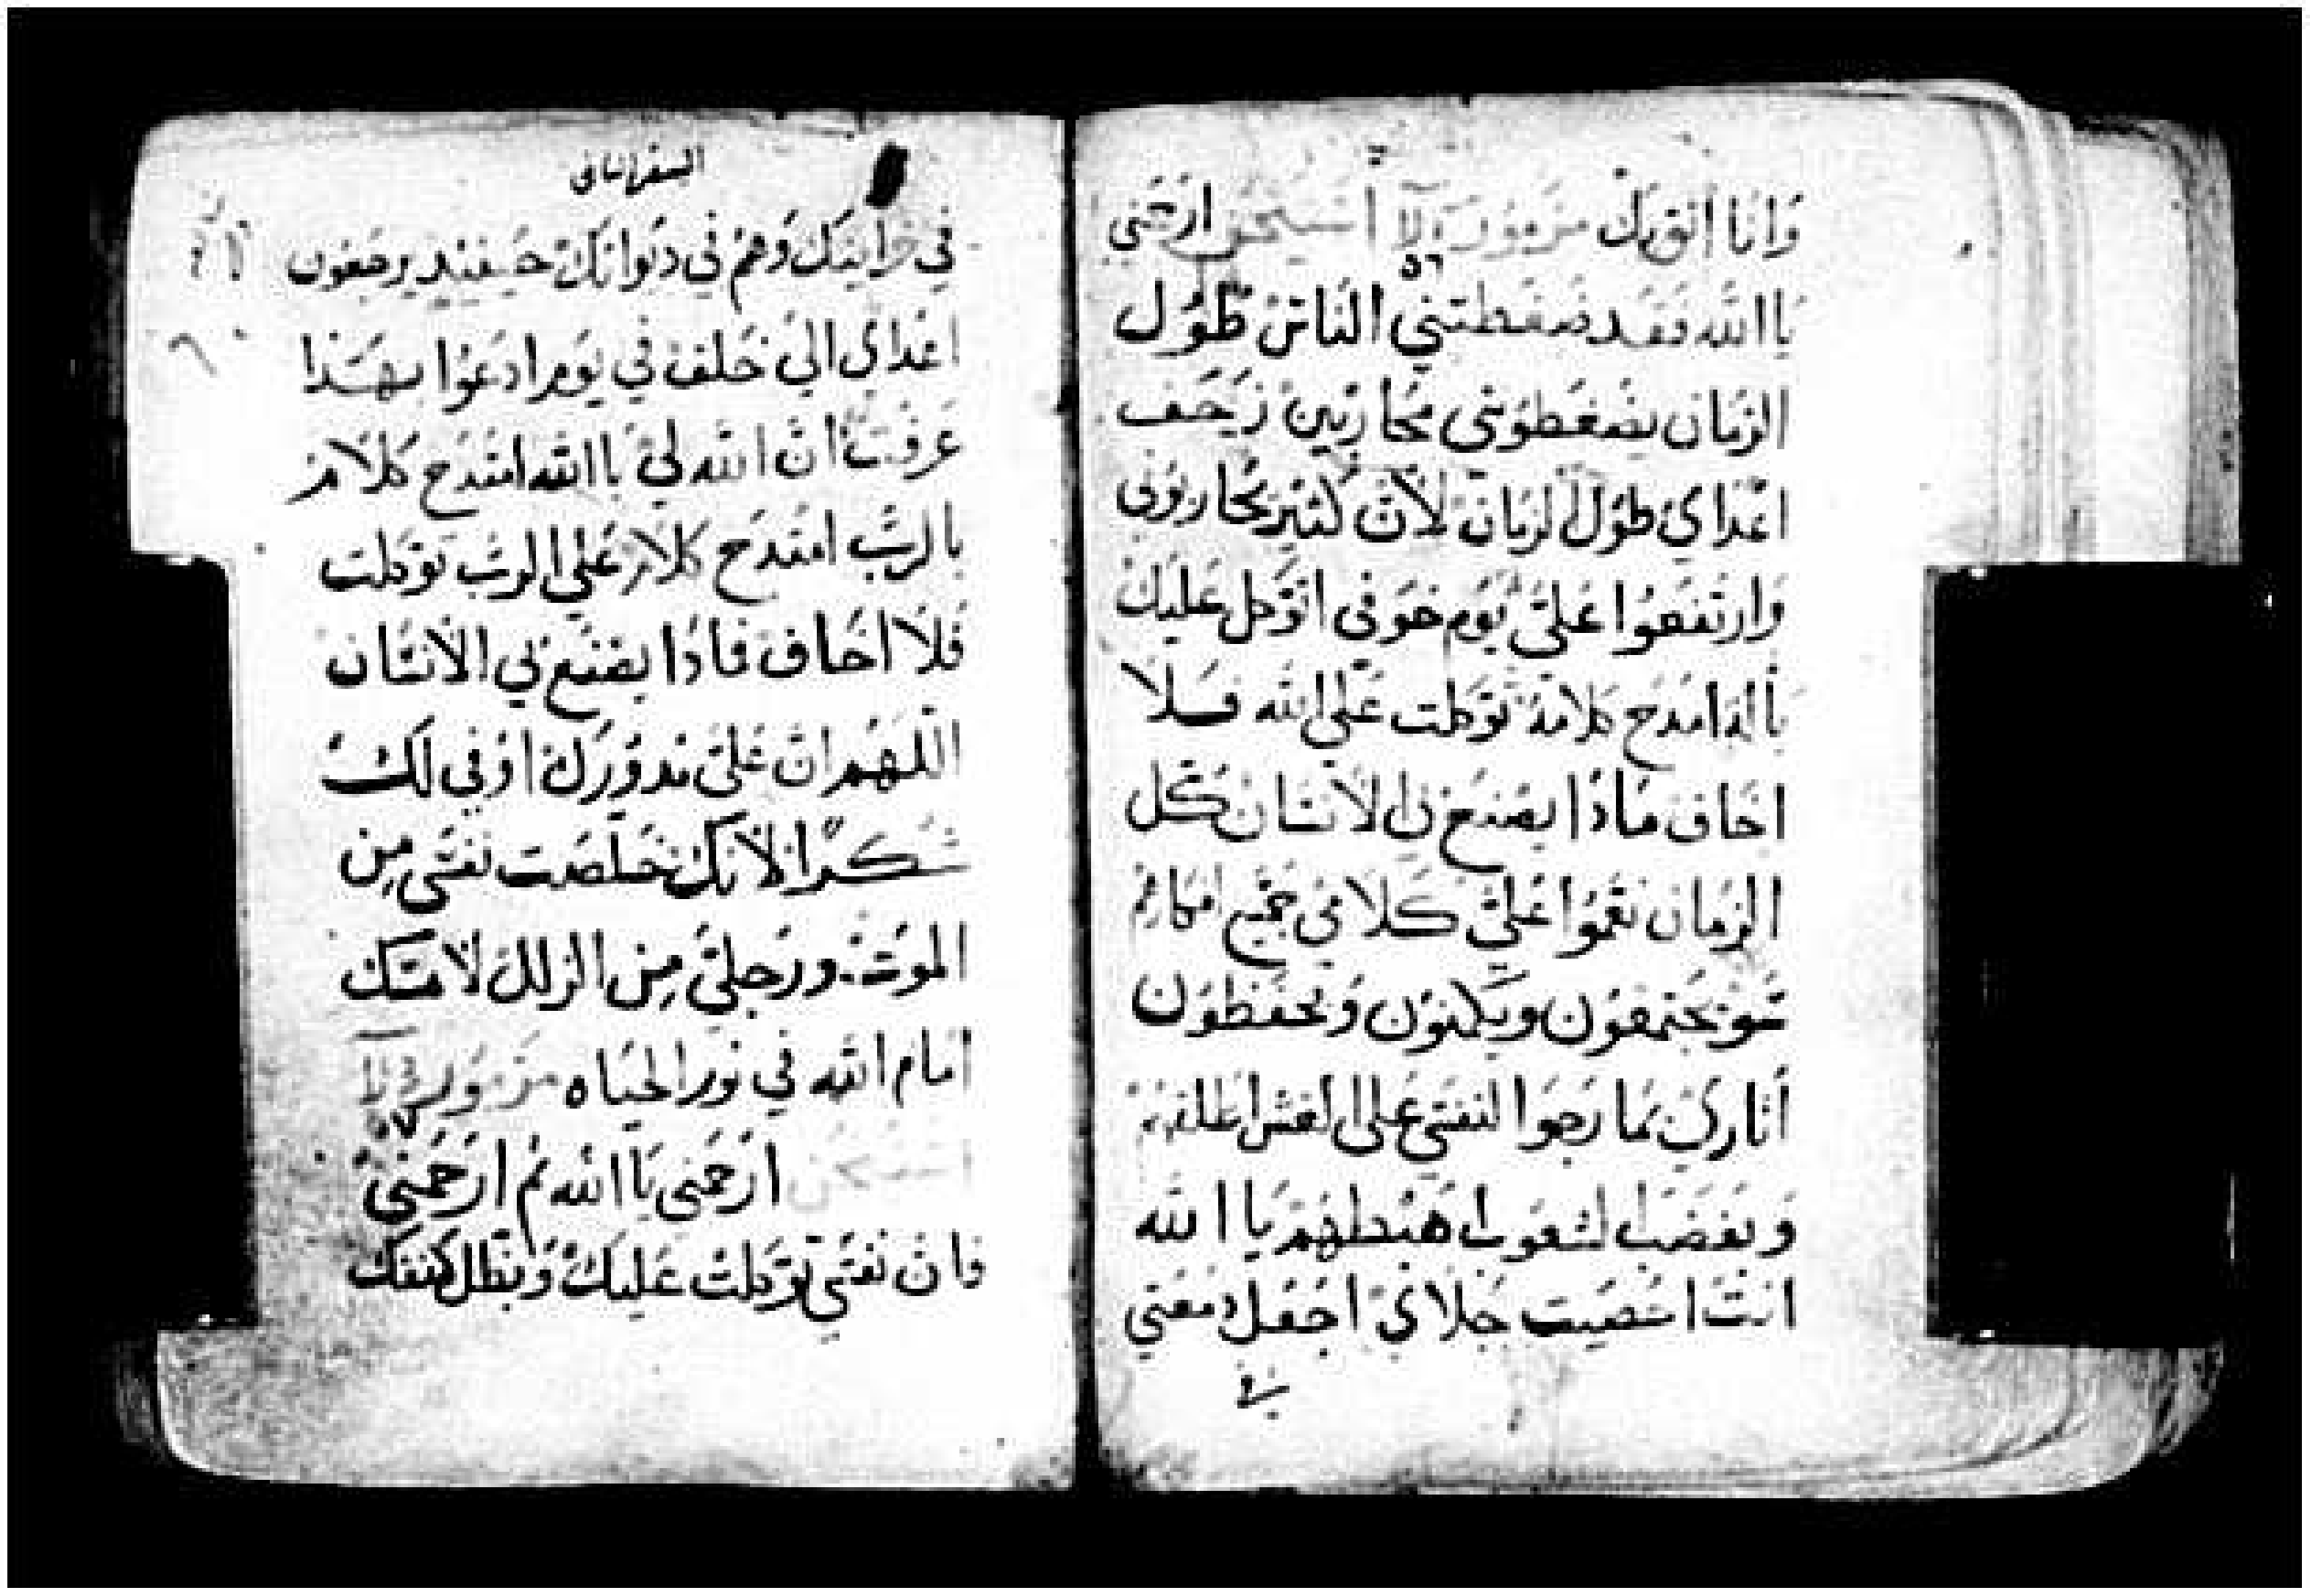 وَانَا اثق بك مزمور استيحق ارحمني
٥٦
يا الله فقد ضغطتني الناس طول
الزمان يضغطوني محاربين زحف
اعداي طول الزمان لان كثير يحاربوني
وارتفعوا علي يوم خوفي اتوكل عليك
بالله امدح كلامه توكلت علي الله فلا
اخاف ماذا يصنع بي الانسان كل
الزمان نقموا علي كلامي جميع افكارهم
سو يجتمعون ويكمنون ويحفظون
اثاري كما رجوا لنفسي علي
وبغضب الشعوب هبطهم يا الله
انت احصيت جلاي اجعل دمعتي
في
السفر الثاني
في وهم في ديوانك حينيد يرجعون
اعداي الي خلف في يوم ادعوا بهذا
عرفت ان الله لي باالله امتدح كلام
بالرب امتدح كلام علي الرب توكلت
فلا اخاف ماذا يصنع بي الانسان
اللهم ان علي ندورك اوفي لك
شكرا لانك خلصت نفسي من
الموت ورجلي من الزلل لامسك
امام الله في نور الحياه مزمور
ارحمني يا الله ثم ارحمني
فان نفسي توكلت عليك وبظل كنفك